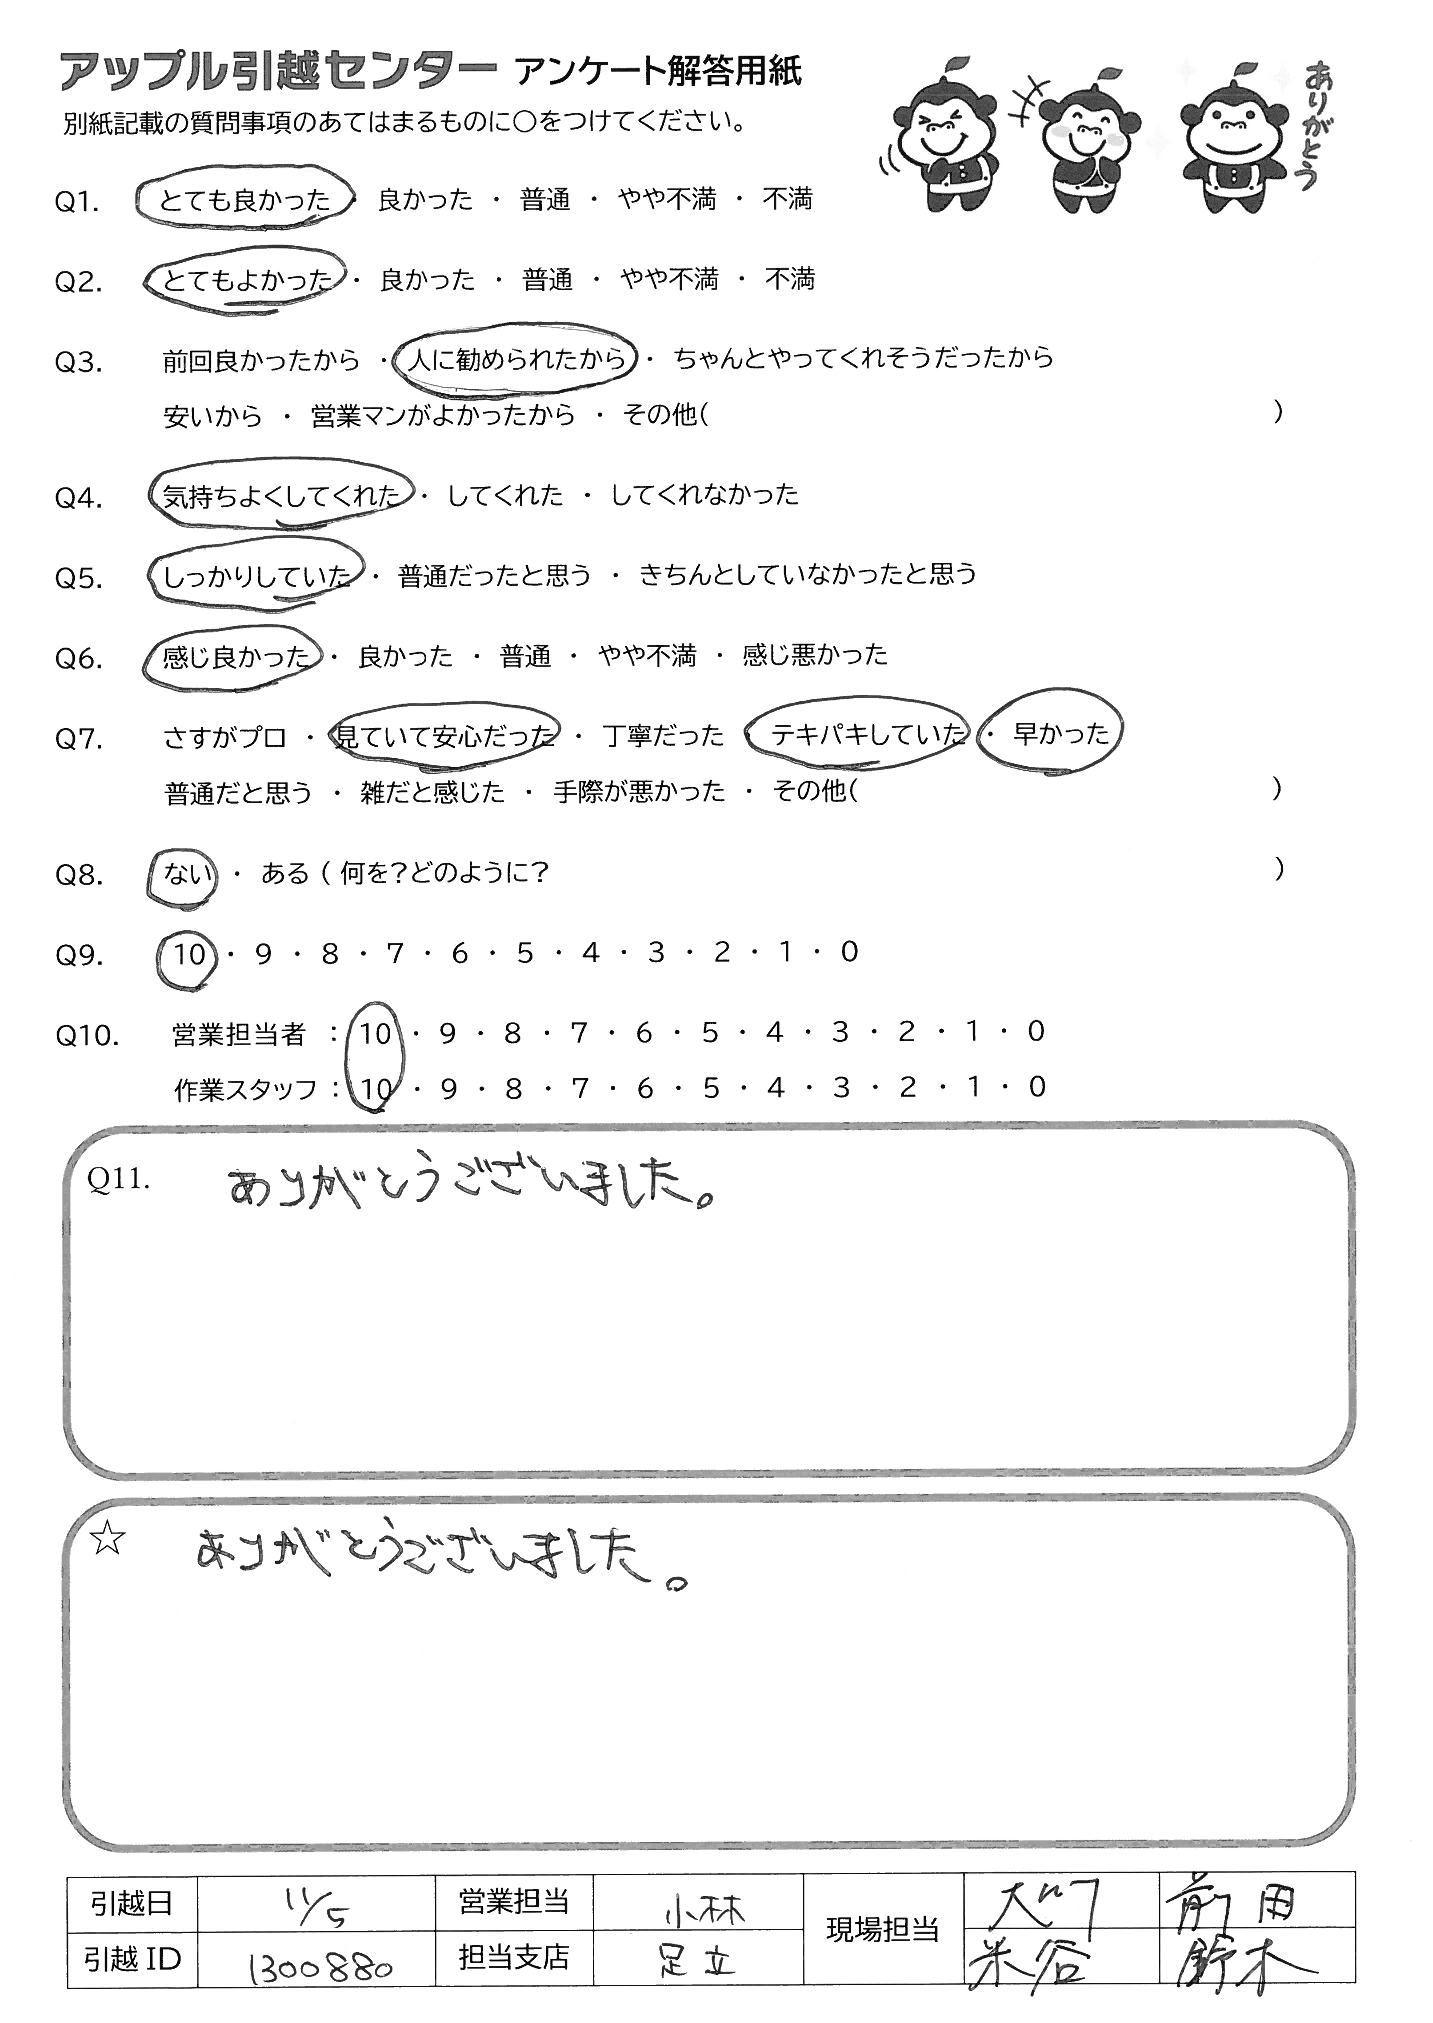 アップル引越センター アンケート解答用紙
別紙記載の質問事項のあてはまるものに〇をつけてください。
ありがとう
Q1. とても良かった 良かった ・ 普通 ・ やや不満 ・ 不満
Q2. とてもよかった ・ 良かった ・ 普通 ・ やや不満 ・ 不満
Q3. 前回良かったから ・ 人に勧められたから ・ ちゃんとやってくれそうだったから
安いから ・ 営業マンがよかったから ・ その他( )
Q4. 気持ちよくしてくれた ・ してくれた ・ してくれなかった
Q5. しっかりしていた ・ 普通だったと思う ・ きちんとしていなかったと思う
Q6. 感じ良かった ・ 良かった ・ 普通 ・ やや不満 ・ 感じ悪かった
Q7. さすがプロ ・ 見ていて安心だった ・ 丁寧だった ・ テキパキしていた ・ 早かった
普通だと思う ・ 雑だと感じた ・ 手際が悪かった ・ その他( )
Q8. ない ・ ある ( 何を?どのように? )
Q9. 10 ・ 9 ・ 8 ・ 7 ・ 6 ・ 5 ・ 4 ・ 3 ・ 2 ・ 1 ・ 0
Q10. 営業担当者 : 10 ・ 9 ・ 8 ・ 7 ・ 6 ・ 5 ・ 4 ・ 3 ・ 2 ・ 1 ・ 0
作業スタッフ : 10 ・ 9 ・ 8 ・ 7 ・ 6 ・ 5 ・ 4 ・ 3 ・ 2 ・ 1 ・ 0
Q11. ありがとうございました。
☆ ありがとうございました。
引越日 11/5 営業担当 小林 現場担当 前田
引越ID 1300880 担当支店 足立 米谷 鈴木